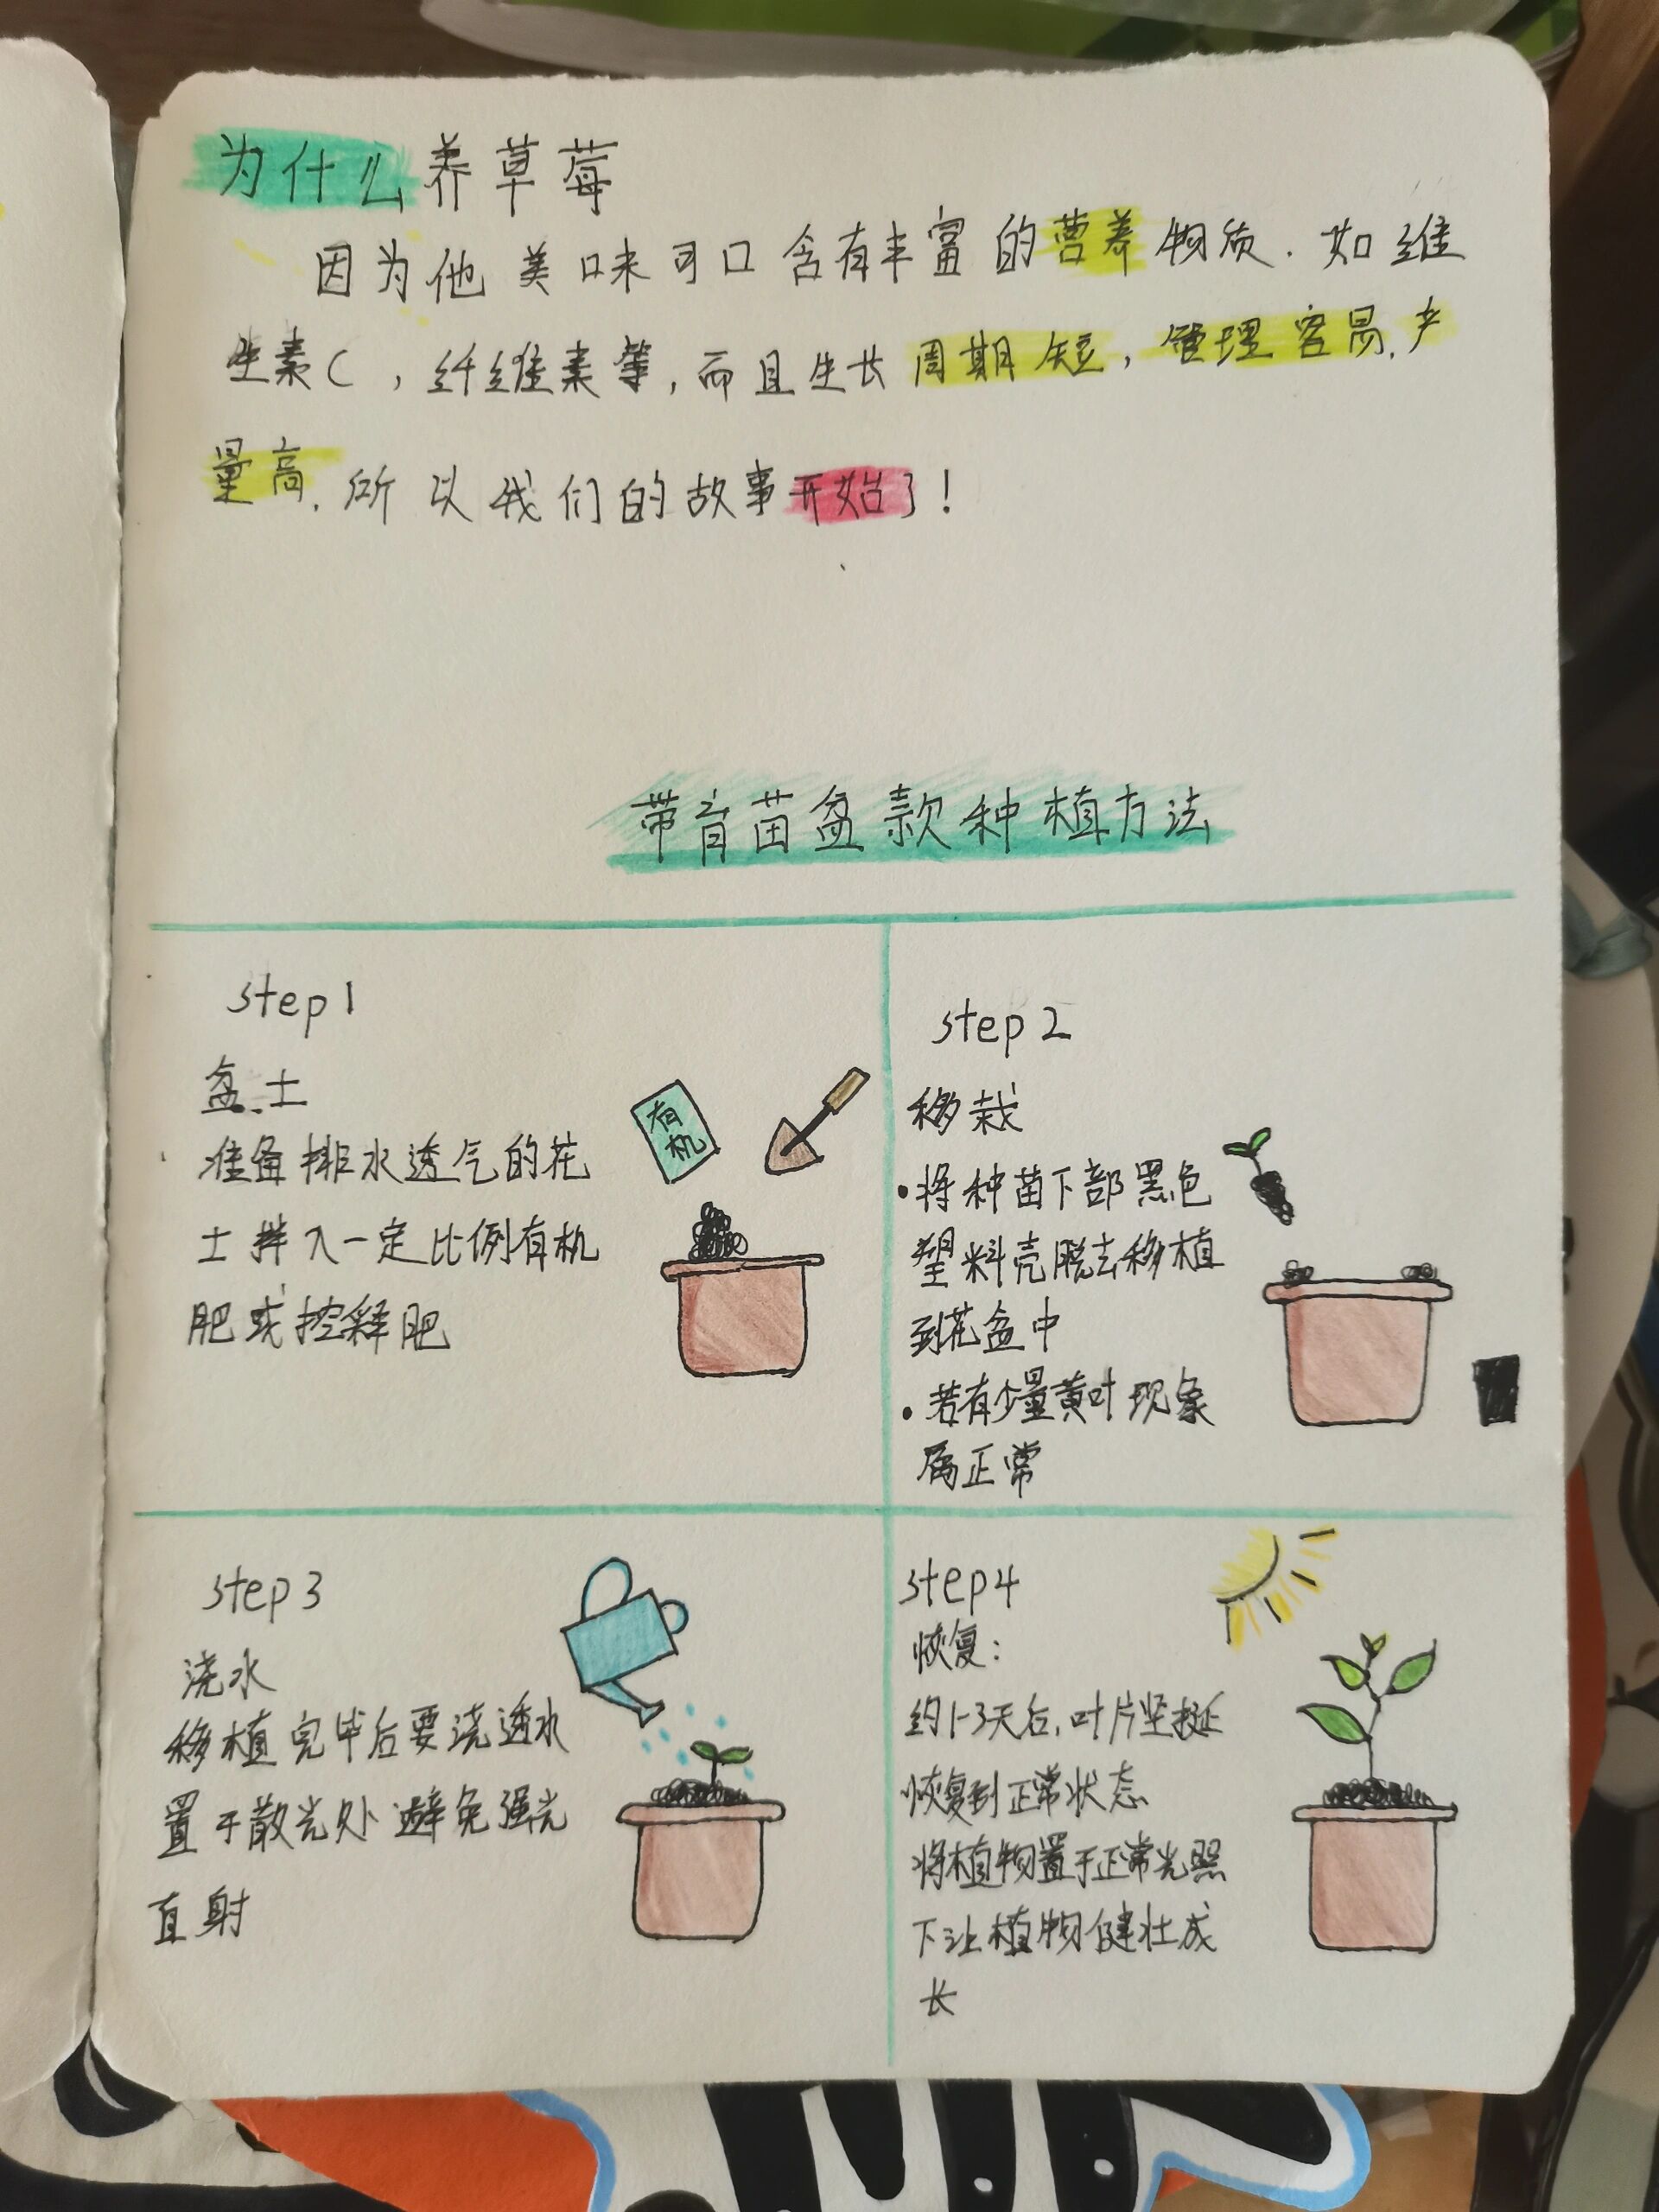 为什么养草莓
因为他美味可口含有丰富的营养物质.如维
生素C,纤维素等,而且生长周期短,管理容易.产
量高.所以我们的故事开始了!
带育苗盆款种植方法
step1
盆土
准备排水透气的花
土拌入一定比例有机
肥或控释肥
有
机
step2
移栽
•将种苗下部黑色
塑料壳脱去移植
到花盆中
•若有少量黄叶现象
属正常
step3
浇水
移植完毕后要浇透水
置于散光处避免强光
直射
step4
恢复:
约1-3天后,叶片坚挺
恢复到正常状态
将植物置于正常光照
下让植物健壮成
长